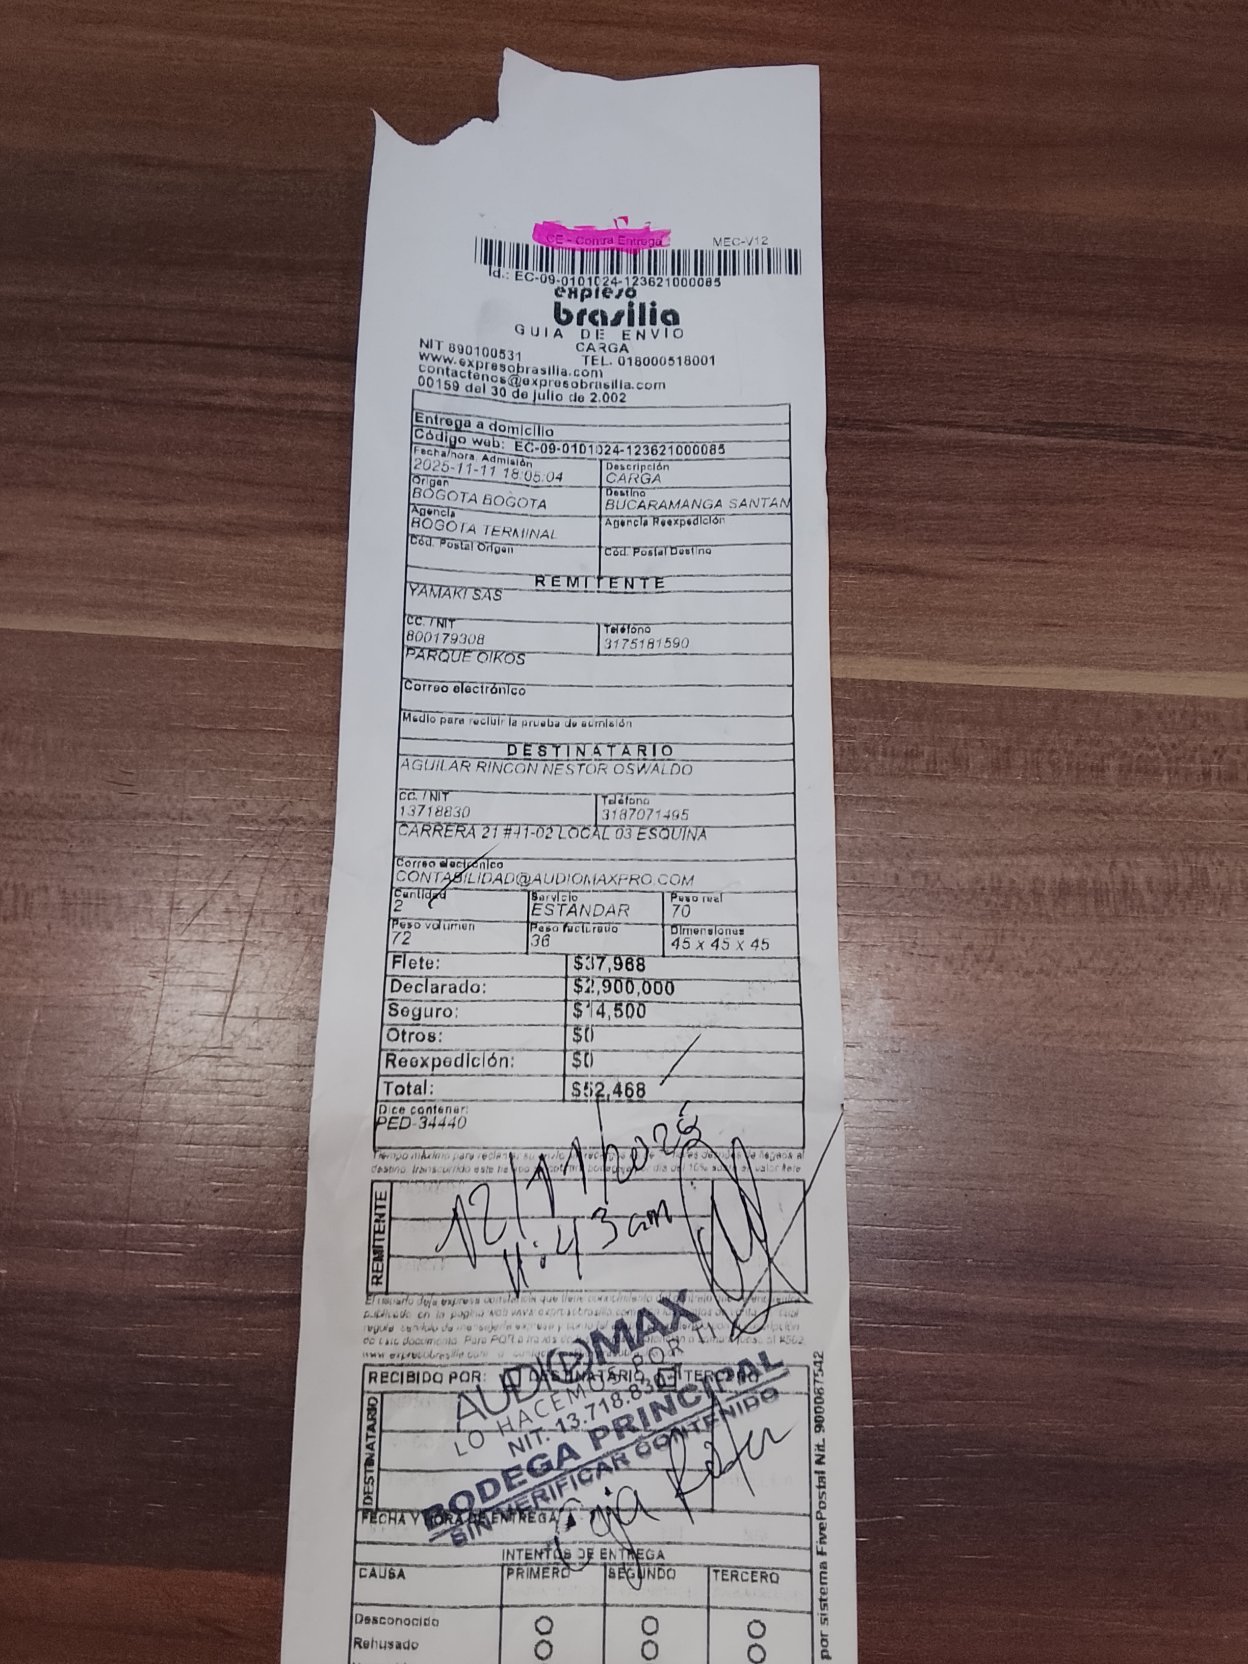 CE - Contra Entrega MEC-V12
Id.: EC-09-0101024-123621000085
expreso
brasilia
GUIA DE ENVIO
NIT 890100531 CARGA
www.expresobrasilia.com TEL. 018000518001
contactenos@expresobrasilia.com
00159 del 30 de julio de 2.002
Entrega a domicilio
Código web: EC-09-0101024-123621000085
Fecha/hora. Admisión Descripción
2025-11-11 18:05:04 CARGA
Origen Destino
BOGOTA BOGOTA BUCARAMANGA SANTAN
Agencia Agencia Reexpedición
BOGOTA TERMINAL
Cód. Postal Origen Cód. Postal Destino
REMITENTE
YAMAKI SAS
CC. / NIT Teléfono
800179308 3175181590
PARQUE OIKOS
Correo electrónico
Medio para recibir la prueba de admisión
DESTINATARIO
AGUILAR RINCON NESTOR OSWALDO
CC. / NIT Teléfono
13718830 3187071495
CARRERA 21 #41-02 LOCAL 03 ESQUINA
Correo electrónico
CONTABILIDAD@AUDIOMAXPRO.COM
Cantidad Servicio Peso real
2 ESTANDAR 70
Peso volumen Peso facturado Dimensiones
72 36 45 x 45 x 45
Flete: $37,968
Declarado: $2,900,000
Seguro: $14,500
Otros: $0
Reexpedición: $0
Total: $52,468
Dice contener:
PED-34440
REMITENTE
12/11/2025
11:43 am
AUDIOMAX
LO HACEMOS POR TI
NIT. 13.718.830
BODEGA PRINCIPAL
SIN VERIFICAR CONTENIDO
RECIBIDO POR: DESTINATARIO TERCERO
DESTINATARIO
FECHA Y HORA DE ENTREGA
INTENTOS DE ENTREGA
CAUSA PRIMERO SEGUNDO TERCERO
Desconocido
Rehusado
por sistema FivePostal Nit. 900087542